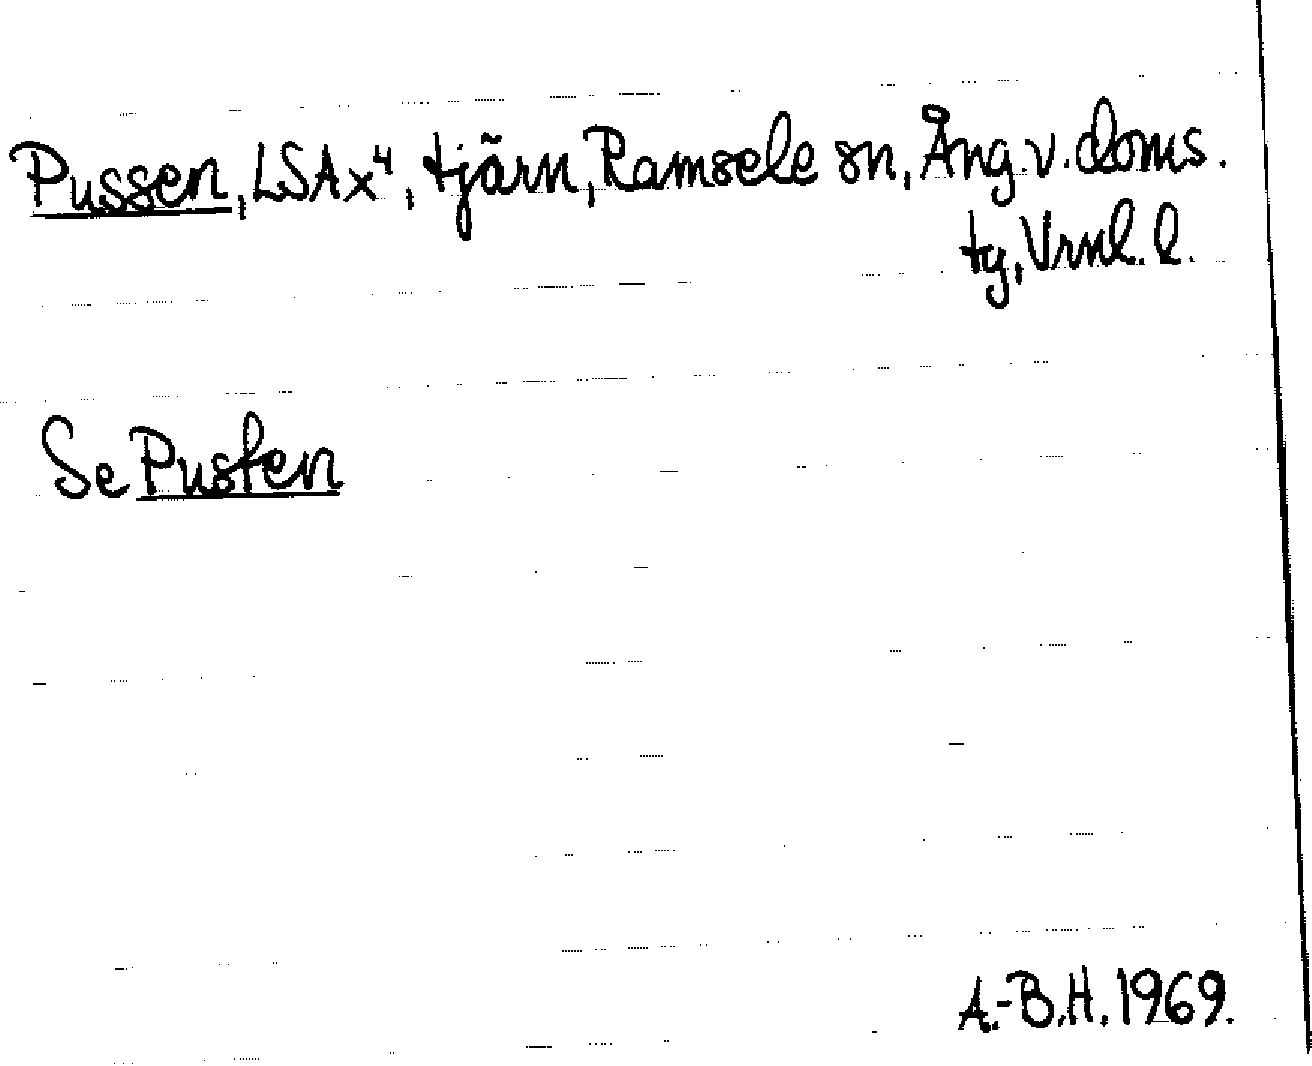 Pussen, LSAx⁴, tjärn, Ramsele sn, Ång. v. doms.
tg, Vrnl. l.
Se Pusten
A.-B.H. 1969.